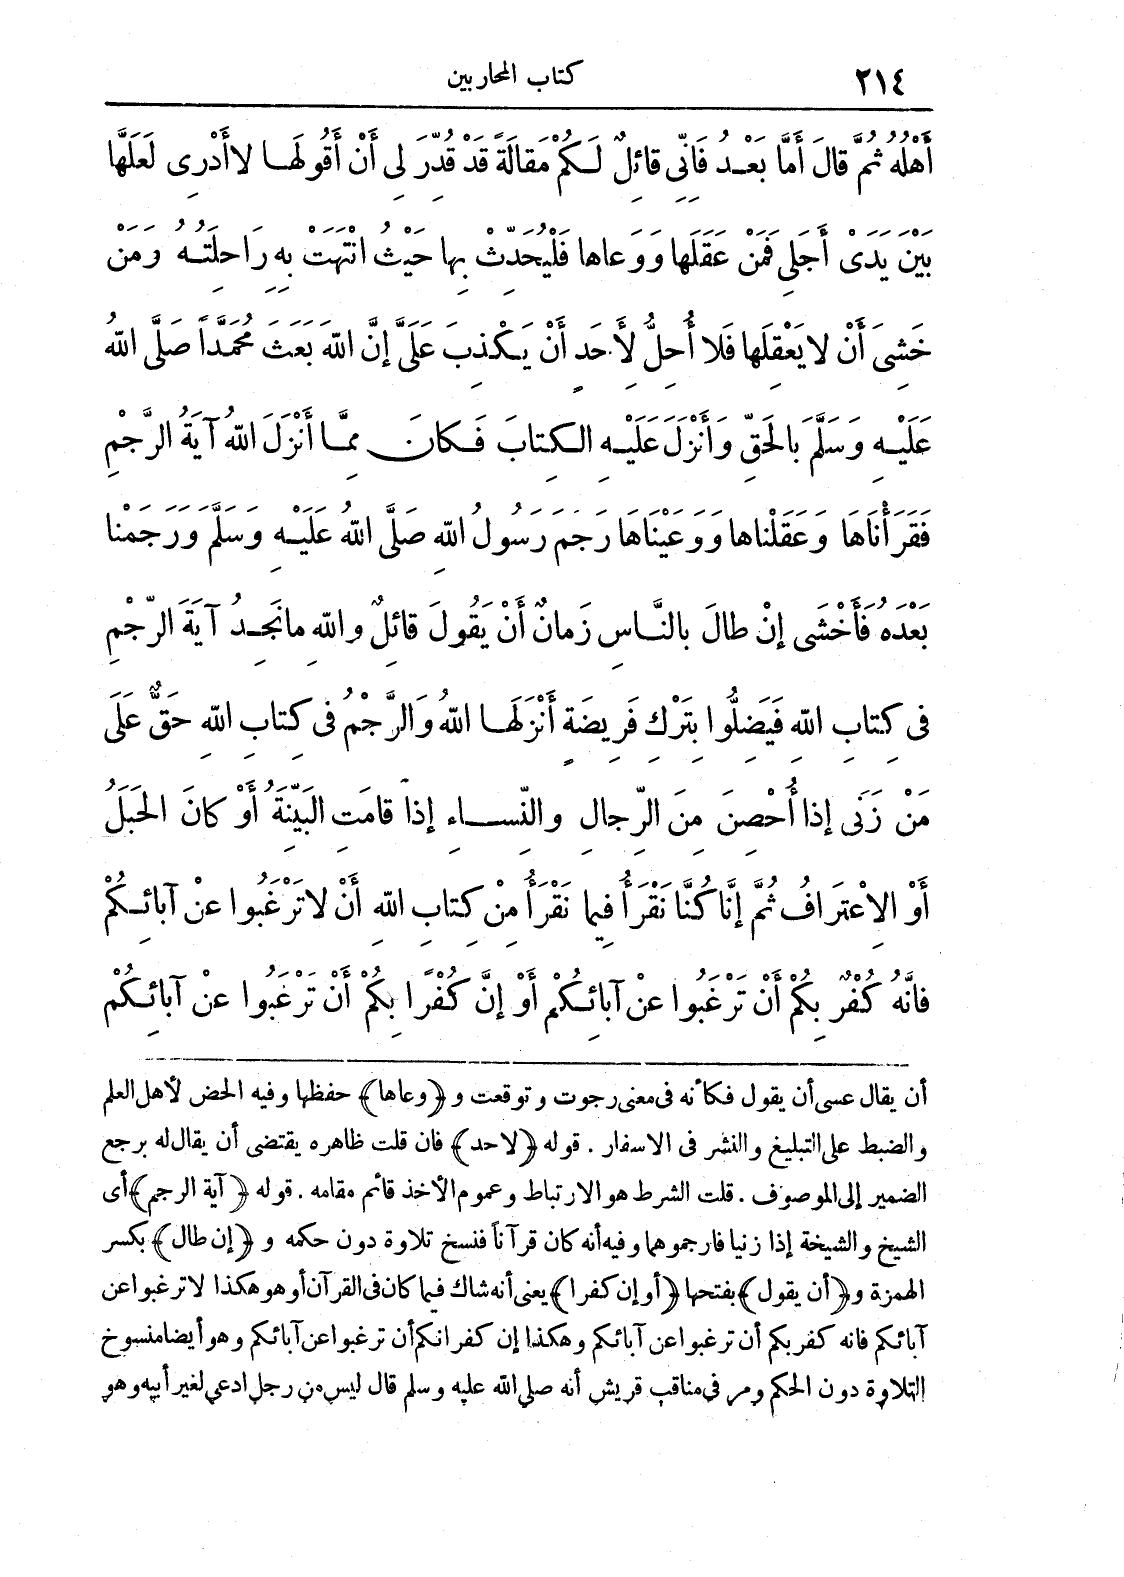 ٢١٤ كتاب المحاربين
أَهْلُهُ ثُمَّ قالَ أَمَّا بَعْدُ فَانِّى قائِلٌ لَكُمْ مَقالَةً قَدْ قُدِّرَ لِى أَنْ أَقُولَها لا أَدْرِى لَعَلَّها
بَيْنَ يَدَىْ أَجَلِى فَمَنْ عَقَلَها وَوَعاها فَلْيُحَدِّثْ بِها حَيْثُ انْتَهَتْ بِهِ رَاحِلَتُهُ وَمَنْ
خَشِىَ أَنْ لا يَعْقِلَها فَلا أُحِلُّ لِأَحَدٍ أَنْ يَكْذِبَ عَلَىَّ إِنَّ اللهَ بَعَثَ مُحَمَّداً صَلَّى اللهُ
عَلَيْهِ وَسَلَّمَ بِالحَقِّ وَأَنْزَلَ عَلَيْهِ الكِتابَ فَكانَ مِمَّا أَنْزَلَ اللهُ آيَةُ الرَّجْمِ
فَقَرَأْنَاهَا وَعَقَلْناها وَوَعَيْنَاهَا رَجَمَ رَسُولُ اللهِ صَلَّى اللهُ عَلَيْهِ وَسَلَّمَ وَرَجَمْنا
بَعْدَهُ فَأَخْشَى إِنْ طالَ بِالنَّاسِ زَمانٌ أَنْ يَقُولَ قائِلٌ واللهِ مانَجِدُ آيَةَ الرَّجْمِ
فِى كِتابِ اللهِ فَيَضِلُّوا بِتَرْكِ فَرِيضَةٍ أَنْزَلَها اللهُ وَالرَّجْمُ فِى كِتابِ اللهِ حَقٌّ عَلَى
مَنْ زَنَى إِذا أُحْصِنَ مِنَ الرِّجالِ والنِّساءِ إِذا قامَتِ البَيِّنَةُ أَوْ كانَ الحَبَلُ
أَوْ الِاعْتِرَافُ ثُمَّ إِنَّا كُنَّا نَقْرَأُ فِيما نَقْرَأُ مِنْ كِتابِ اللهِ أَنْ لا تَرْغَبُوا عنْ آبائِكُمْ
فانَّهُ كُفْرٌ بِكُمْ أَنْ تَرْغَبُوا عنْ آبائِكُمْ أَوْ إِنَّ كُفْرًا بِكُمْ أَنْ تَرْغَبُوا عنْ آبائِكُمْ
أن يقال عسى أن يقول فكأنه فى معنى رجوت وتوقعت و ﴿وعاها﴾ حفظها وفيه الحض لأهل العلم
والضبط على التبليغ والنشر فى الاسفار . قوله ﴿لاحد﴾ فان قلت ظاهره يقتضى أن يقال له يرجع
الضمير إلى الموصوف . قلت الشرط هو الارتباط وعموم الأخذ قائم مقامه . قوله ﴿آية الرجم﴾ أى
الشيخ والشيخة إذا زنيا فارجموهما وفيه أنه كان قرآناً فنسخ تلاوة دون حكمه و ﴿إن طال﴾ بكسر
الهمزة و ﴿أن يقول﴾ بفتحها ﴿أو إن كفرا﴾ يعنى أنه شاك فيما كان فى القرآن أو هو هكذا لا ترغبوا عن
آبائكم فانه كفر بكم أن ترغبوا عن آبائكم وهكذا إن كفرانكم أن ترغبوا عن آبائكم وهو أيضا منسوخ
التلاوة دون الحكم ومر فى مناقب قريش أنه صلى الله عليه وسلم قال ليس من رجل ادعى لغير أبيه وهو